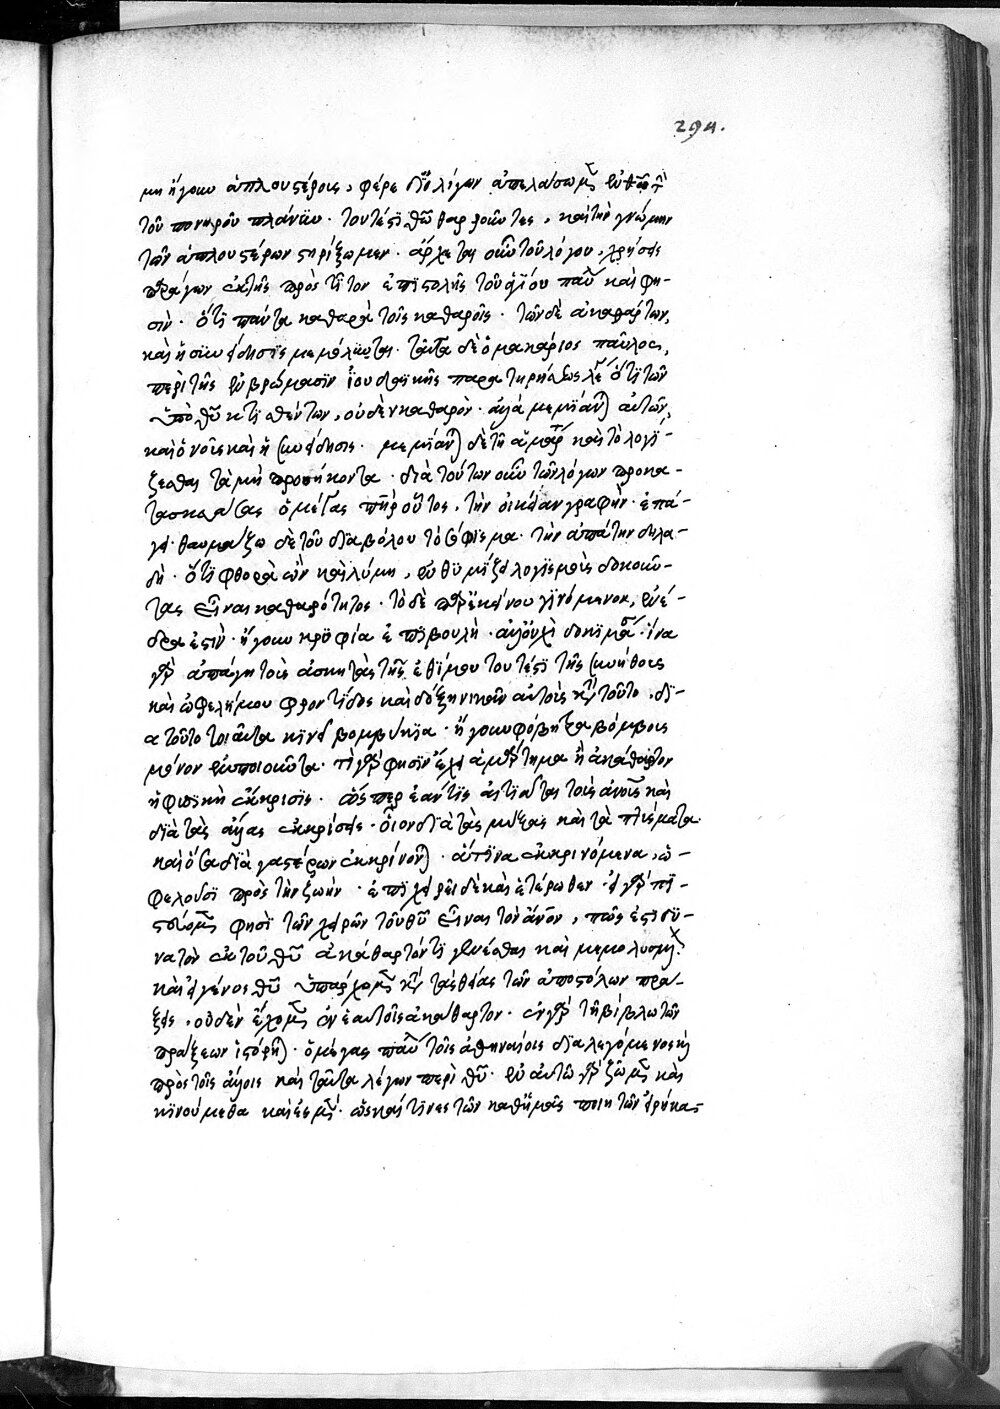 294.
μη ἤγουν ἁπλουστέροις, φέρε δι' ὀλίγων ἀπελάσωμεν
τοῦ πονηροῦ πλάνην. τουτέστι θῶ θαρροῦντες, καὶ τὴν γνώμην
τῶν ἁπλουστέρων στηρίξωμεν. ἄρχεται οὖν τοῦ λόγου, χρήσεις
παράγων ἐκ τῆς πρὸς τίτον ἐπιστολῆς τοῦ ἁγίου παύλου καὶ φη-
σὶν. ὅτι πάντα καθαρὰ τοῖς καθαροῖς. τῶν δὲ ἀκαθάρτων,
καὶ ἡ συνείδησις μεμόλυνται. ταῦτα δὲ ὁ μακάριος παῦλος,
περὶ τῆς ἐν βρώμασιν ἰουδαϊκῆς παρατηρήσεως λέγει ὅτι τῶν
ὑπὸ θῦ κτισθέντων, οὐδὲν καθαρὸν. ἀλλὰ μεμίανται αὐτῶν,
καὶ ὁ νοῦς καὶ ἡ συνείδησις. μεμίανται δὲ τῆ ἁμαρτία καὶ τὸ λογί-
ζεσθαι τὰ μὴ προσήκοντα. διὰ τούτων οὖν τῶν λόγων προκα-
τασκευάσας ὁ μέγας πατὴρ οὗτος, τὴν οἰκείαν γραφὴν. ἐπά-
γει. θαυμάζω δὲ τοῦ διαβόλου τὸ σόφισμα. τὴν ἀπάτην δηλα-
δὴ. ὅτι φθορὰ ὢν καὶ λύμη, ἐνθυμίζει λογισμοὺς δοκοῦν-
τας εἶναι καθαρότητος. τὸ δὲ παρ' ἐκείνου γινόμενον, ἐνέ-
δρα ἐστὶν. ἤγουν κρυφία ἐπιβουλὴ. ἀλλ' οὐχὶ δοκιμασία. ἵνα
γὰρ ἀπάγη τοὺς ἀσκητὰς τῆς ἐθίμου τουτέστι τῆς συνήθους
καὶ ὠφελίμου φροντίδος καὶ δόξη νικᾶν αὐτοὺς κατὰ τοῦτο, δι-
α τοῦτο τοιαῦτα κινεῖ βομβύκια. ἤγουν φόβητρα βόμβους
μόνον ἐμποιοῦντα. τί γὰρ φησὶν ἔχει ἁμάρτημα ἢ ἀκάθαρτον
ἡ φυσικὴ ἔκκρισις. ὥσπερ ἐάν τις αἰτιᾶται τοὺς ἀνους καὶ
διὰ τὰς ἄλλας ἐκκρίσεις. οἷον διὰ τὰς μύξας καὶ τὰ πτύσματα
καὶ ὅσα διὰ γαστέρων ἐκκρίνονται. ἅτινα ἐκκρινόμενα, ὠ-
φελοῦσι πρὸς τὴν ζωὴν. ἐπιχειρεῖ δὲ καὶ ἑτέρωθεν. εἰ γὰρ πι-
στεύομεν φησὶ τῶν χειρῶν τοῦ θῦ εἶναι τὸν ἄνον, πῶς ἐστι δυ-
νατὸν ἐκ τοῦ θῦ ἀκάθαρτόν τι γενέσθαι καὶ μεμολυσμένον
καὶ εἰ γένος θῦ ὑπάρχομεν κατὰ τὰς θείας τῶν ἀποστόλων πρά-
ξεις, οὐδὲν ἔχομεν ἐν ἑαυτοῖς ἀκάθαρτον. ἐν γὰρ τῆ βίβλω τῶν
πράξεων ἱστόρηται. ὁ μέγας παῦλος τοῖς ἀθηναίοις διαλεγόμενος ἢ
πρὸς τοῖς ἄλλοις καὶ ταῦτα λέγων περὶ θῦ. ἐν αὐτῶ γὰρ ζῶμεν καὶ
κινούμεθα καὶ ἐσμὲν. ὡς καί τινες τῶν καθ' ἡμᾶς ποιητῶν εἰρήκασ-